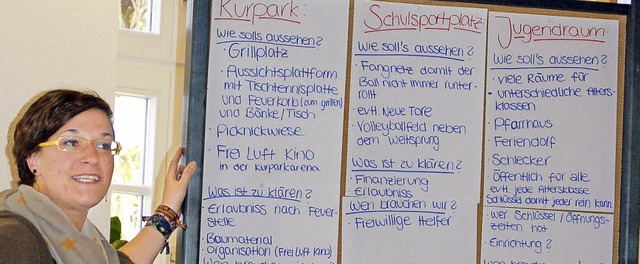 Kurpark:
Wie soll's aussehen?
· Grillplatz
· Aussichtsplattform
mit Tischtennisplatte
und Feuerkorb (zum grillen)
und Bänke/Tisch
· Picknickwiese
· Frei Luft Kino
in der Kurparkarena
Was ist zu klären?
· Erlaubniss nach Feuer-
stelle
· Baumaterial
· Organisation (Frei Luft Kino)
Schulsportplatz:
Wie soll's aussehen?
· Fangnetz damit der
Ball nicht immer runter-
rollt
· evtl. Neue Tore
· Volleyballfeld neben
dem Weitsprung
Was ist zu klären?
· Finanzierung
· Erlaubniss
Wen brauchen wir?
· Freiwillige Helfer
Jugendraum:
Wie soll's aussehen?
· viele Räume für
· unterschiedliche Alters-
klassen
· Pfarrhaus
· Feriendorf
· Schlecker
· öffentlich für alle
evtl. jede Altersklasse
Schlüssel damit jeder rein kann
· wer Schlüssel / Öffnungs-
zeiten hat
· Einrichtung?